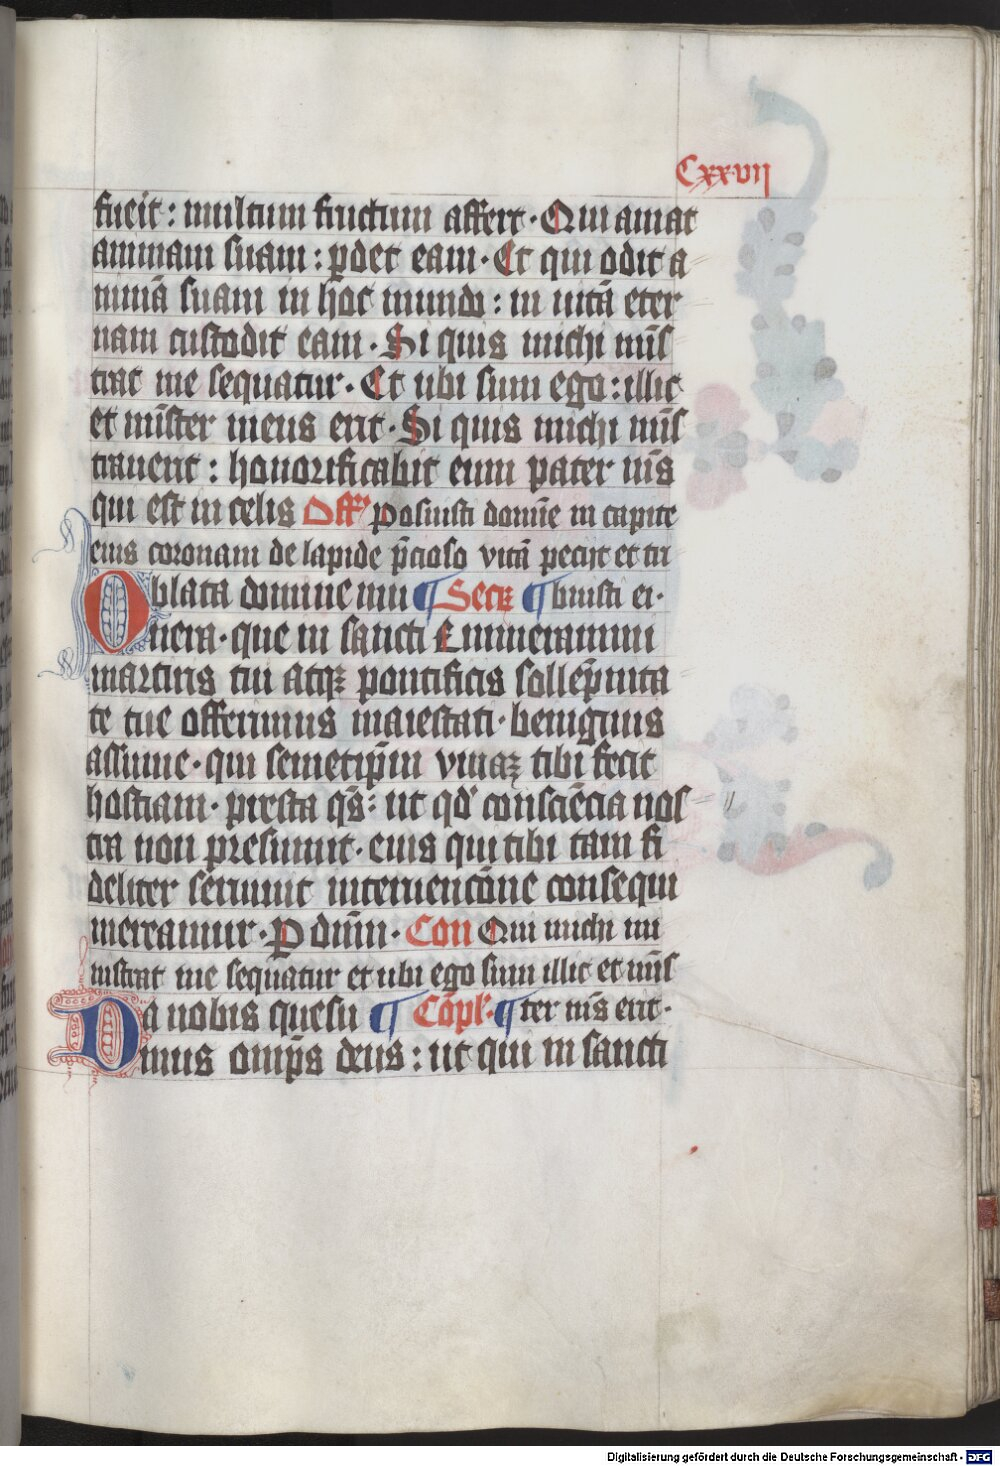 Cxxvij
fueit : multum fructum affert · Qui amat
animam suam : ꝑdet eam · Et qui odit a
nimā suam in hoc mundo : in uitā eter
nam custodit eam · Si quis michi mīs
trat me sequatur · Et ubi sum ego : illic
et mīster meus erit · Si quis michi mīs
trauerit : honorificabit eum pater mūs
qui est in celis Off Posuisti domīe in capite
eius coronam de lapide p̄cioso vitā pecijt et tri
Oblata domine mu ¶ Secꝛ ¶ buisti ei ·
nera · que in sancti Emmerammi
martiris tui atqꝫ pontificis sollēpnita
te tue offerimus maiestati · benignus
assume · qui semetip̄m viuaꝫ tibi fecit
hostiam · presta qs̄ : ut qd' consciēcia nos
tra non presumit · eius qui tibi tam fi
deliter seruiuit interuencōne consequi
mereamur · P dūm · Con Qui michi mi
nistrat me sequatur et ubi ego sum illic et mīs
Da nobis quesu ¶ Cōpl · ¶ ter mūs erit ·
mus omīps deus : ut qui in sancti
Digitalisierung gefördert durch die Deutsche Forschungsgemeinschaft - DFG